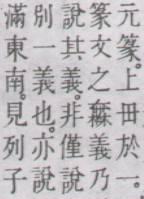 元篆。上毌於一。
篆文之橆義乃
說其義。非僅說
別一義也。亦說
滿東南。見列子